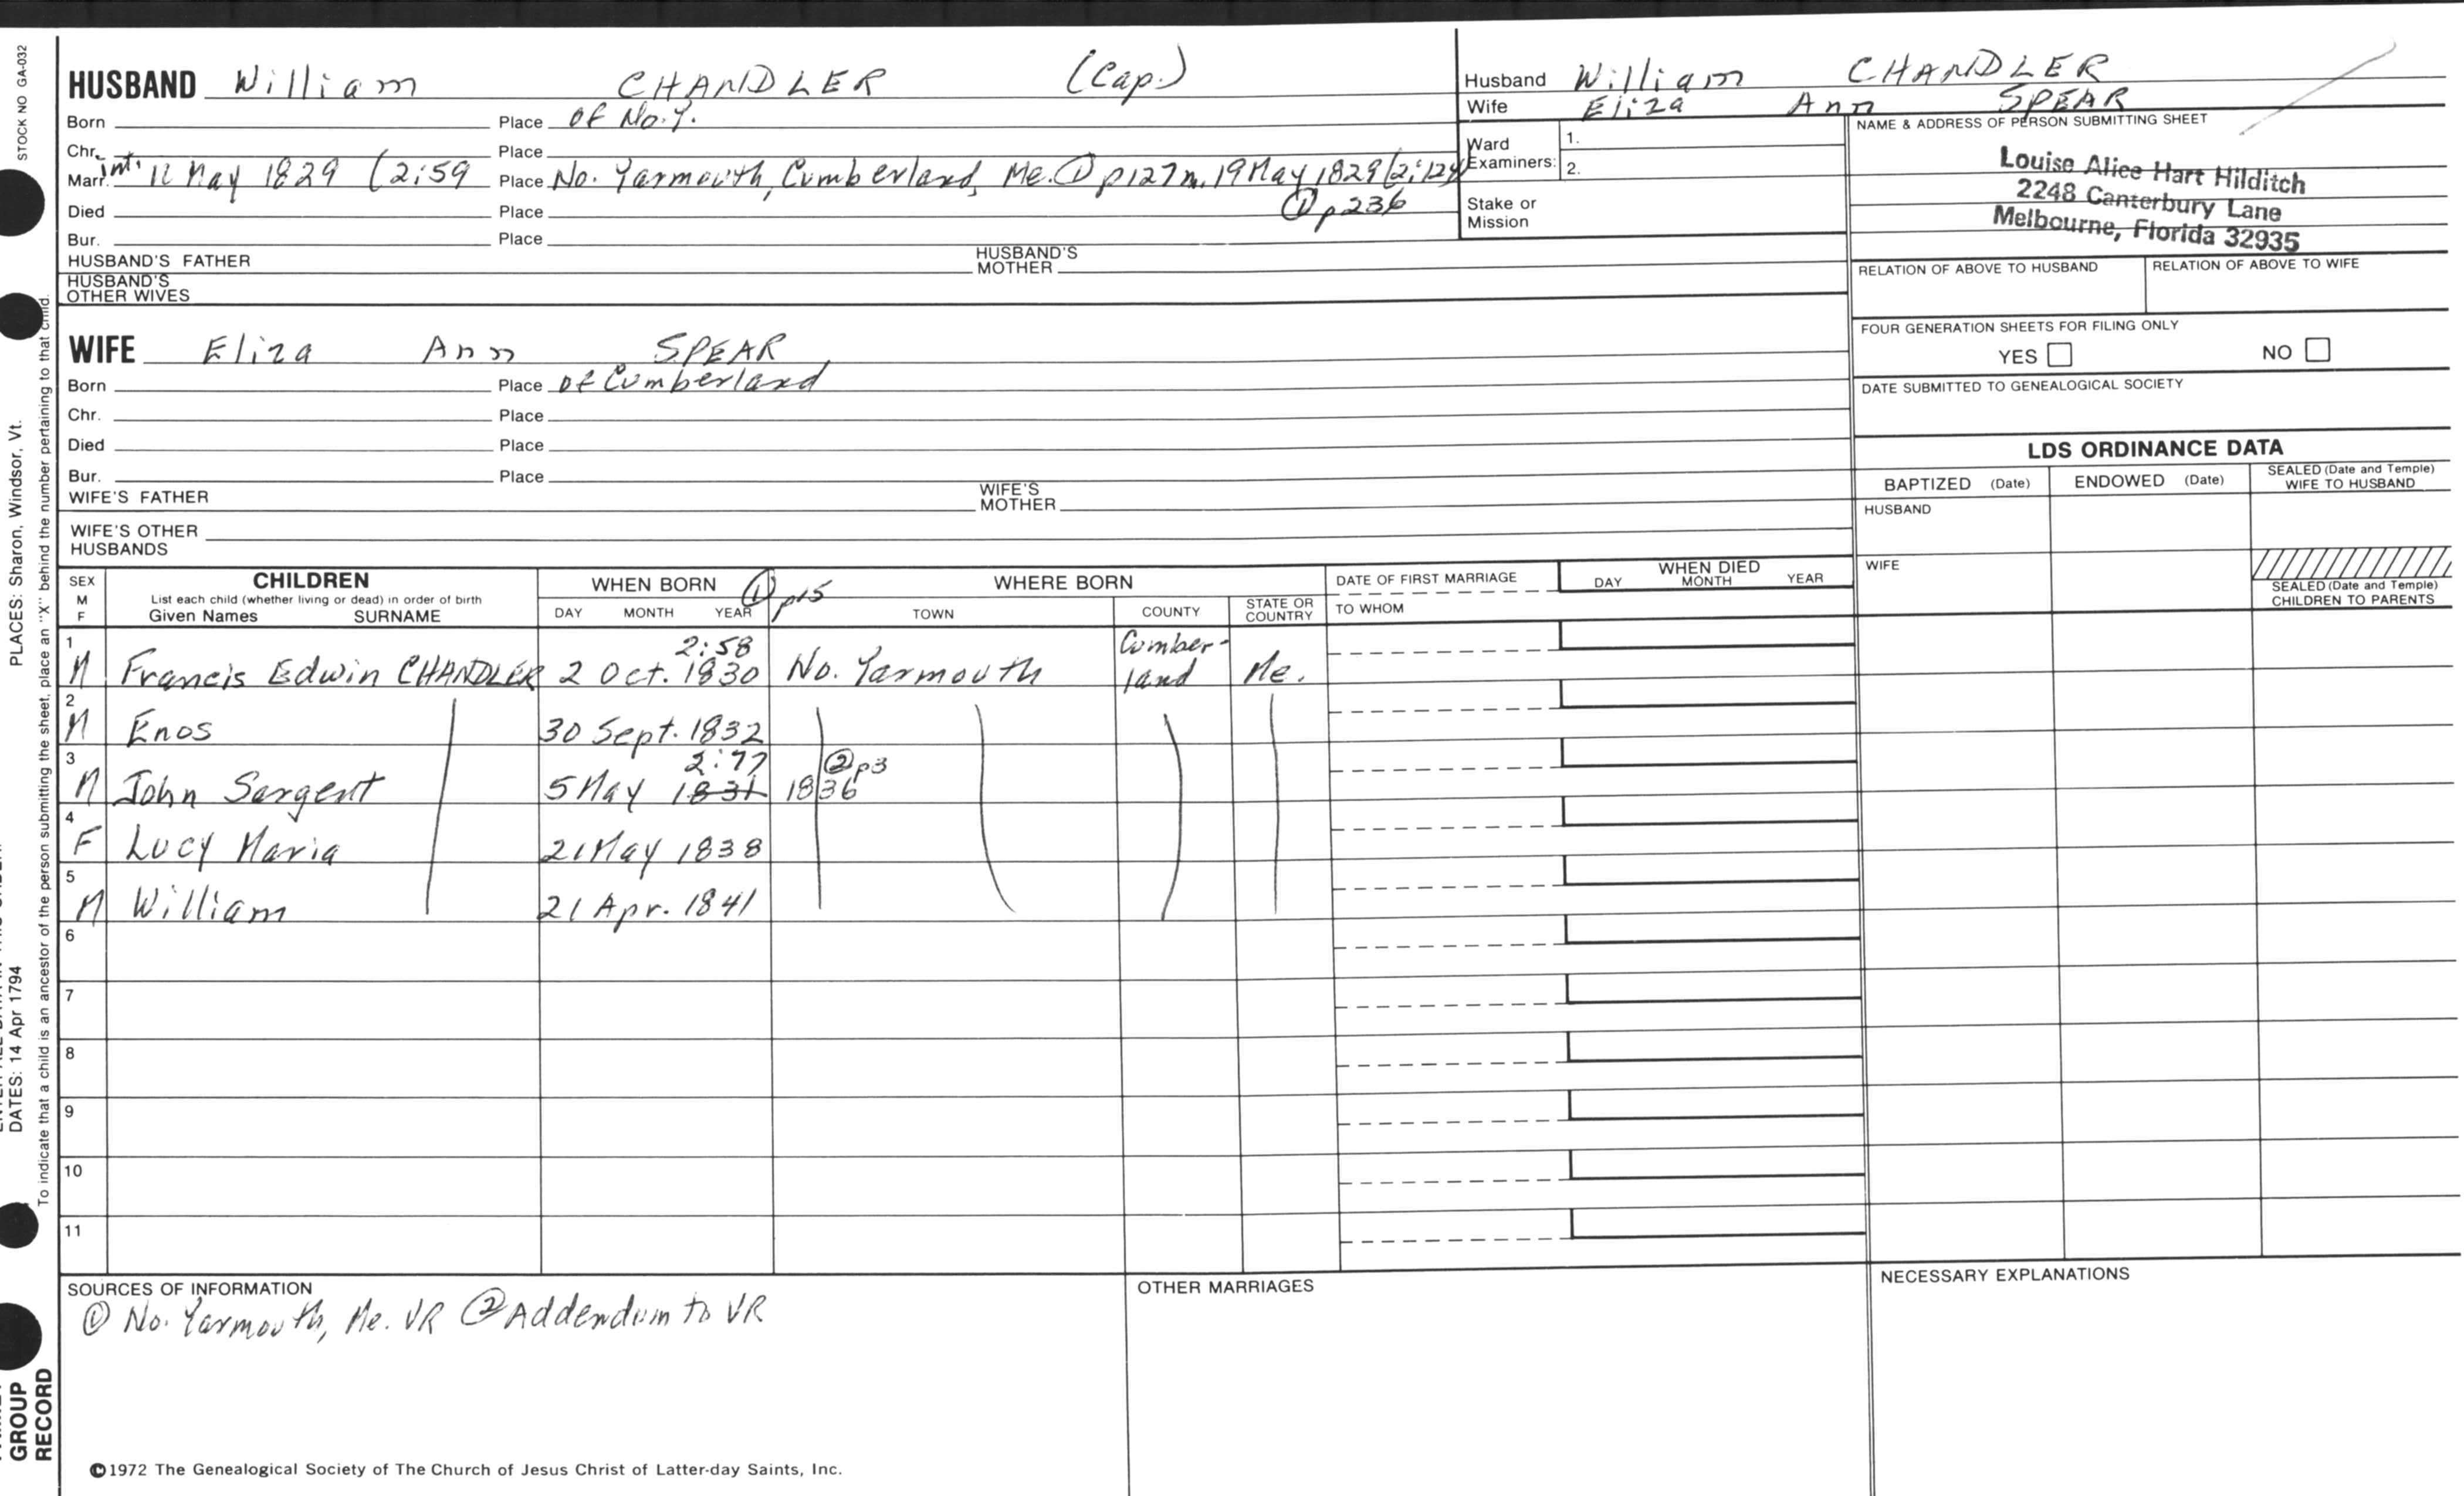 STOCK NO GA-032
HUSBAND William CHANDLER (Cap.)
Born Place of No. Y.
Chr. Place
Marr. int. 11 May 1829 (2:59 Place No. Yarmouth, Cumberland, Me. ① p127 m. 19 May 1829 (2:124)
Died Place ① p236
Bur. Place
HUSBAND'S FATHER HUSBAND'S MOTHER
HUSBAND'S OTHER WIVES
Husband William CHANDLER
Wife Eliza Ann SPEAR
Ward Examiners: 1.
2.
Stake or Mission
NAME & ADDRESS OF PERSON SUBMITTING SHEET
Louise Alice Hart Hilditch
2248 Canterbury Lane
Melbourne, Florida 32935
RELATION OF ABOVE TO HUSBAND RELATION OF ABOVE TO WIFE
FOUR GENERATION SHEETS FOR FILING ONLY
YES NO
DATE SUBMITTED TO GENEALOGICAL SOCIETY
WIFE Eliza Ann SPEAR
Born Place of Cumberland
Chr. Place
Died Place
Bur. Place
WIFE'S FATHER WIFE'S MOTHER
WIFE'S OTHER HUSBANDS
LDS ORDINANCE DATA
BAPTIZED (Date) ENDOWED (Date) SEALED (Date and Temple) WIFE TO HUSBAND
HUSBAND
WIFE
SEALED (Date and Temple) CHILDREN TO PARENTS
SEX M F CHILDREN WHEN BORN ① p15 WHERE BORN DATE OF FIRST MARRIAGE WHEN DIED
List each child (whether living or dead) in order of birth
Given Names SURNAME DAY MONTH YEAR TOWN COUNTY STATE OR COUNTRY TO WHOM DAY MONTH YEAR
2:58
1 M Francis Edwin CHANDLER 2 Oct. 1830 No. Yarmouth Cumber-land Me.
2 M Enos 30 Sept. 1832
2:77 ② p3
3 M John Sargent 5 May 1831 1836
4 F Lucy Maria 21 May 1838
5 M William 21 Apr. 1841
6
7
8
9
10
11
SOURCES OF INFORMATION
① No. Yarmouth, Me. VR ② Addendum to VR
OTHER MARRIAGES
NECESSARY EXPLANATIONS
©1972 The Genealogical Society of The Church of Jesus Christ of Latter-day Saints, Inc.
PLACES: Sharon, Windsor, Vt.
DATES: 14 Apr 1794
To indicate that a child is an ancestor of the person submitting the sheet, place an "X" behind the number pertaining to that child.
GROUP
RECORD